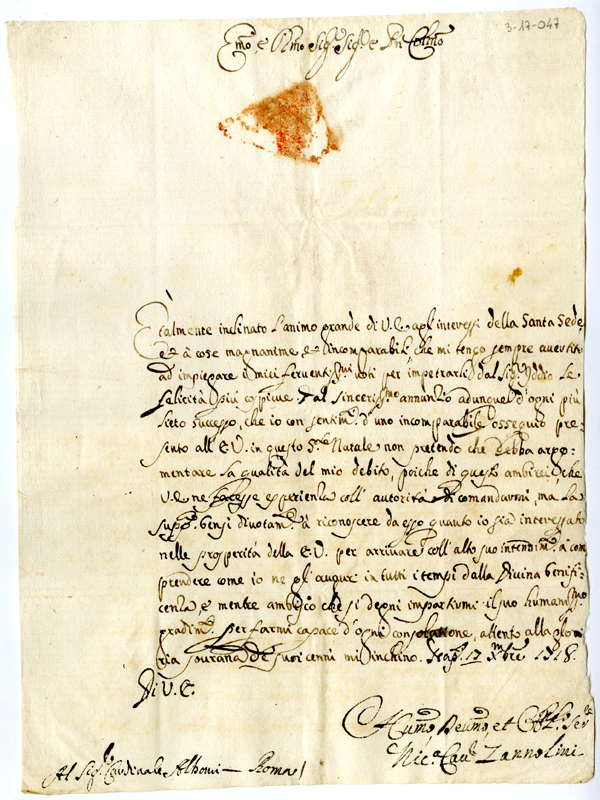 3-17-047
Em̃o, e Rm̃o Sig.r Sig.r e Pñ Colm̃o
È talmente inclinato l'animo grande di V. E. agl'interessi della Santa Sede,
et à cose magnanime, et incomparabili, che mi tengo sempre avvertito
ad impiegare i miei ferventiss.mi voti per impetrarle dal Sig.r Iddio le
felicità più cospicue. Dal sinceriss.mo annunzio adunque d'ogni più
lieto successo, che io con sentim.o d'uno incomparabile ossequio pre-
sento all'E. V. in questo S.to Natale non pretendo che debba argo-
mentare la qualità del mio debito, poiche di questi ambirei, che
V. E. ne facesse esperienza coll'autorità di comandarmi, ma la
supp.co bensi divotam.e à riconoscere da esso quanto io sia interessato
nelle prosperità della E. V. per arrivare coll'alto suo intendim.o à com-
prendere come io ne gl'auguri in tutti i tempi dalla Divina benifi-
cenza, e mentre ambisco che si degni impartirmi il suo humaniss.mo
gradim.o per farmi capace d'ogni consolatione, attento alla gloria
ria sourana de' suoi cenni mi inchino. Nap. 17 Xmbre 1718.
Di V. E.
Humo Deumo et Obblo Ser.e
Nic.a Cau.r Zannolini
Al Sig.r Cardinale Albani — Roma